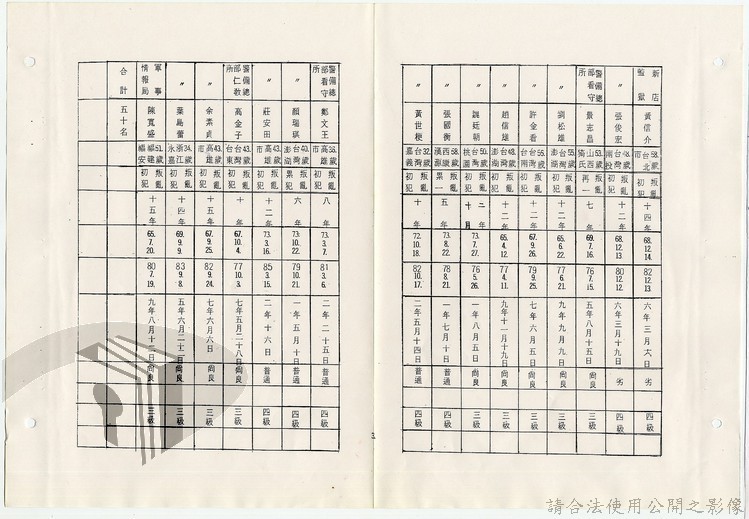 新店監獄 黃信介 58.歲 台北市 叛亂 初犯 十四年 68.12.14. 82.12.13 六年三月六日 劣 四級
〃 張俊宏 48.歲 台灣南投 叛亂 初犯 十二年 68.12.13. 80.12.12. 六年三月十九日 劣 四級
警備總部看守所 景志昌 53.歲 山西 叛亂 再一 七年 69.7.16. 76.7.15. 五年八月十五日 尚良 三級
〃 劉松雄 55.歲 台灣澎湖 叛亂 初犯 十二年 65.6.22. 77.6.21. 九年 尚良 三級
〃 許金看 56.歲 台灣台南 叛亂 初犯 十二年 67.9.26. 79.9.25. 七年六月五日 尚良 三級
〃 趙信雄 49.歲 台灣澎湖 叛亂 初犯 十二年 65.4.12. 77.4.11. 九年十一月十九日 尚良 三級
〃 魏廷朝 50.歲 台灣桃園 叛亂 二年十月 73.7.27. 76.5.26. 一年八月五日 尚良 三級
〃 張國衡 68.歲 西康漢源 叛亂 累一 六年 73.8.22. 78.8.21. 一年七月十日 普通 四級
〃 黃世梗 32.歲 台灣嘉義 叛亂 初犯 十年 72.10.18. 82.10.17. 二年五月十四日 普通 四級
警備總部看守所 鄭文王 56.歲 高雄市 叛亂 初犯 八年 73.3.7. 81.3.6. 二年二十五日 普通 四級
〃 顏瑞琪 40.歲 台灣澎湖 叛亂 累犯 六年 73.10.22. 79.10.21. 一年五月十日 普通 四級
〃 莊安田 43.歲 高雄市 叛亂 初犯 十二年 73.3.16. 85.3.15. 二年十六日 普通 四級
警備總部仁教所 高金子 43.歲 台灣台東 叛亂 初犯 十年 67.10.4. 77.10.3. 七年五月二十八日 尚良 三級
〃 余素貞 43.歲 高雄市 叛亂 初犯 十五年 67.9.25. 82.9.24. 七年六月六日 尚良 三級
〃 葉島蕾 34.歲 浙江永嘉 叛亂 初犯 十四年 69.9.9. 83.9.8. 五年六月二十二日 尚良 三級
軍事情報局 陳寬盛 51.歲 福建福安 叛亂 初犯 十五年 65.7.20. 80.7.19. 九年八月十二日 尚良 三級
合計 五十名
請合法使用公開之影像